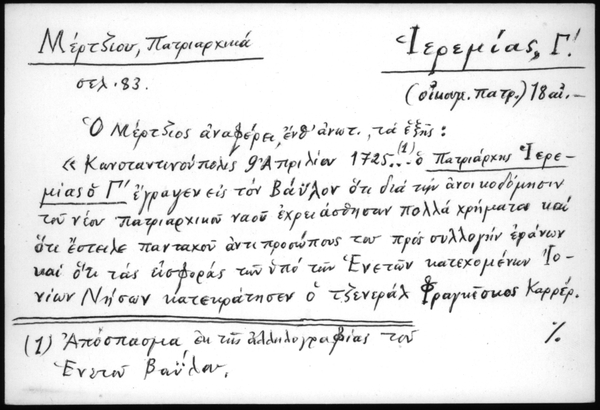 Μέρτζιου, Πατριαρχικά
Ἱερεμίας, Γ΄.
σελ. 83.
(οἰκουμ. πατρ.) 18 αἰ.—
Ὁ Μέρτζιος ἀναφέρει, ἔνθ' ἀνωτ., τά ἑξῆς:
«Κωνσταντινούπολις 9 Ἀπριλίου 1725...(1) ὁ Πατριάρχης Ἱερε-
μίας ὁ Γ΄ ἔγραψεν εἰς τόν Βάϋλον ὅτι διά τήν ἀνοικοδόμησιν
τοῦ νέου πατριαρχικοῦ ναοῦ ἐχρειάσθησαν πολλά χρήματα καί
ὅτι ἔστειλε πανταχοῦ ἀντιπροσώπους του πρός συλλογήν ἐράνων
καί ὅτι τάς εἰσφοράς τῶν ὑπό τῶν Ἑνετῶν κατεχομένων Ἰο-
νίων Νήσων κατεκράτησεν ὁ τζενεράλ Φραγκῖσκος Καρρέρ.
(1) Ἀπόσπασμα ἐκ τῆς ἀλληλογραφίας τοῦ
Ἑνετοῦ Βαΰλου.
%